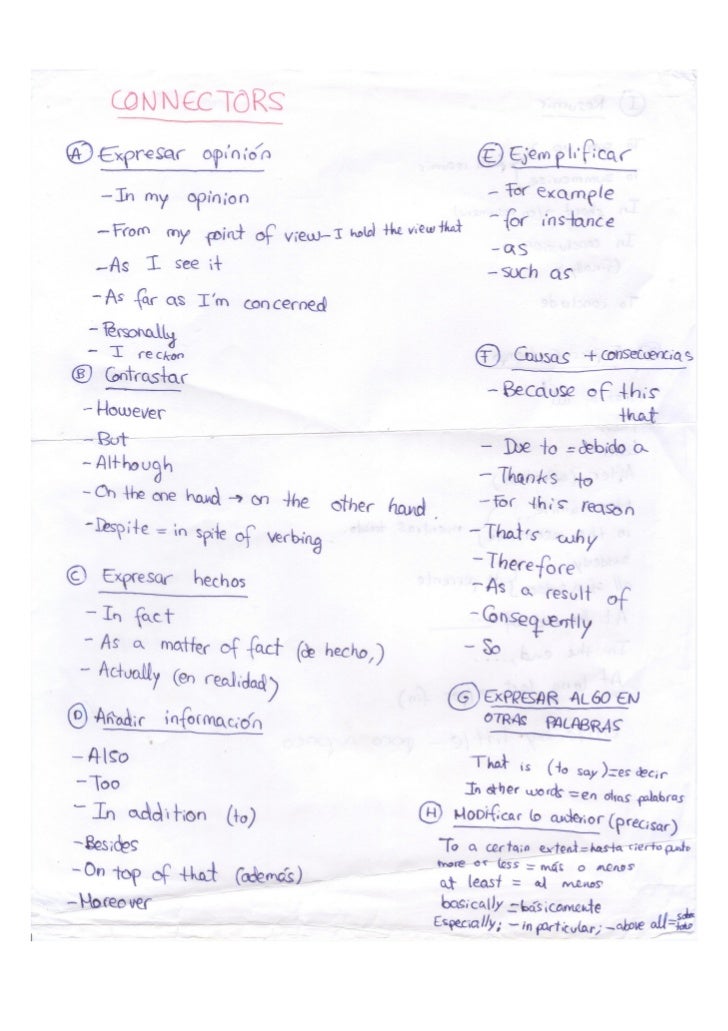 CONNECTORS
A Expresar opinión
- In my opinion
- From my point of view - I hold the view that
- As I see it
- As far as I'm concerned
- Personally
- I reckon
B Contrastar
- However
- But
- Although
- On the one hand → on the other hand.
- Despite = in spite of verbing
C Expresar hechos
- In fact
- As a matter of fact (de hecho,)
- Actually (en realidad)
D Añadir información
- Also
- Too
- In addition (to)
- Besides
- On top of that (además)
- Moreover
E Ejemplificar
- For example
- for instance
- as
- such as
F Causas + consecuencias
- Because of this
that
- Due to = debido a
- Thanks to
- For this reason
- That's why
- Therefore
- As a result of
- Consequently
- So
G EXPRESAR ALGO EN
OTRAS PALABRAS
That is (to say) = es decir
In other words = en otras palabras
H Modificar lo anterior (precisar)
To a certain extent = hasta cierto punto
more or less = más o menos
at least = al menos
basically = básicamente
Especially; - in particular; - above all = sobre
todo